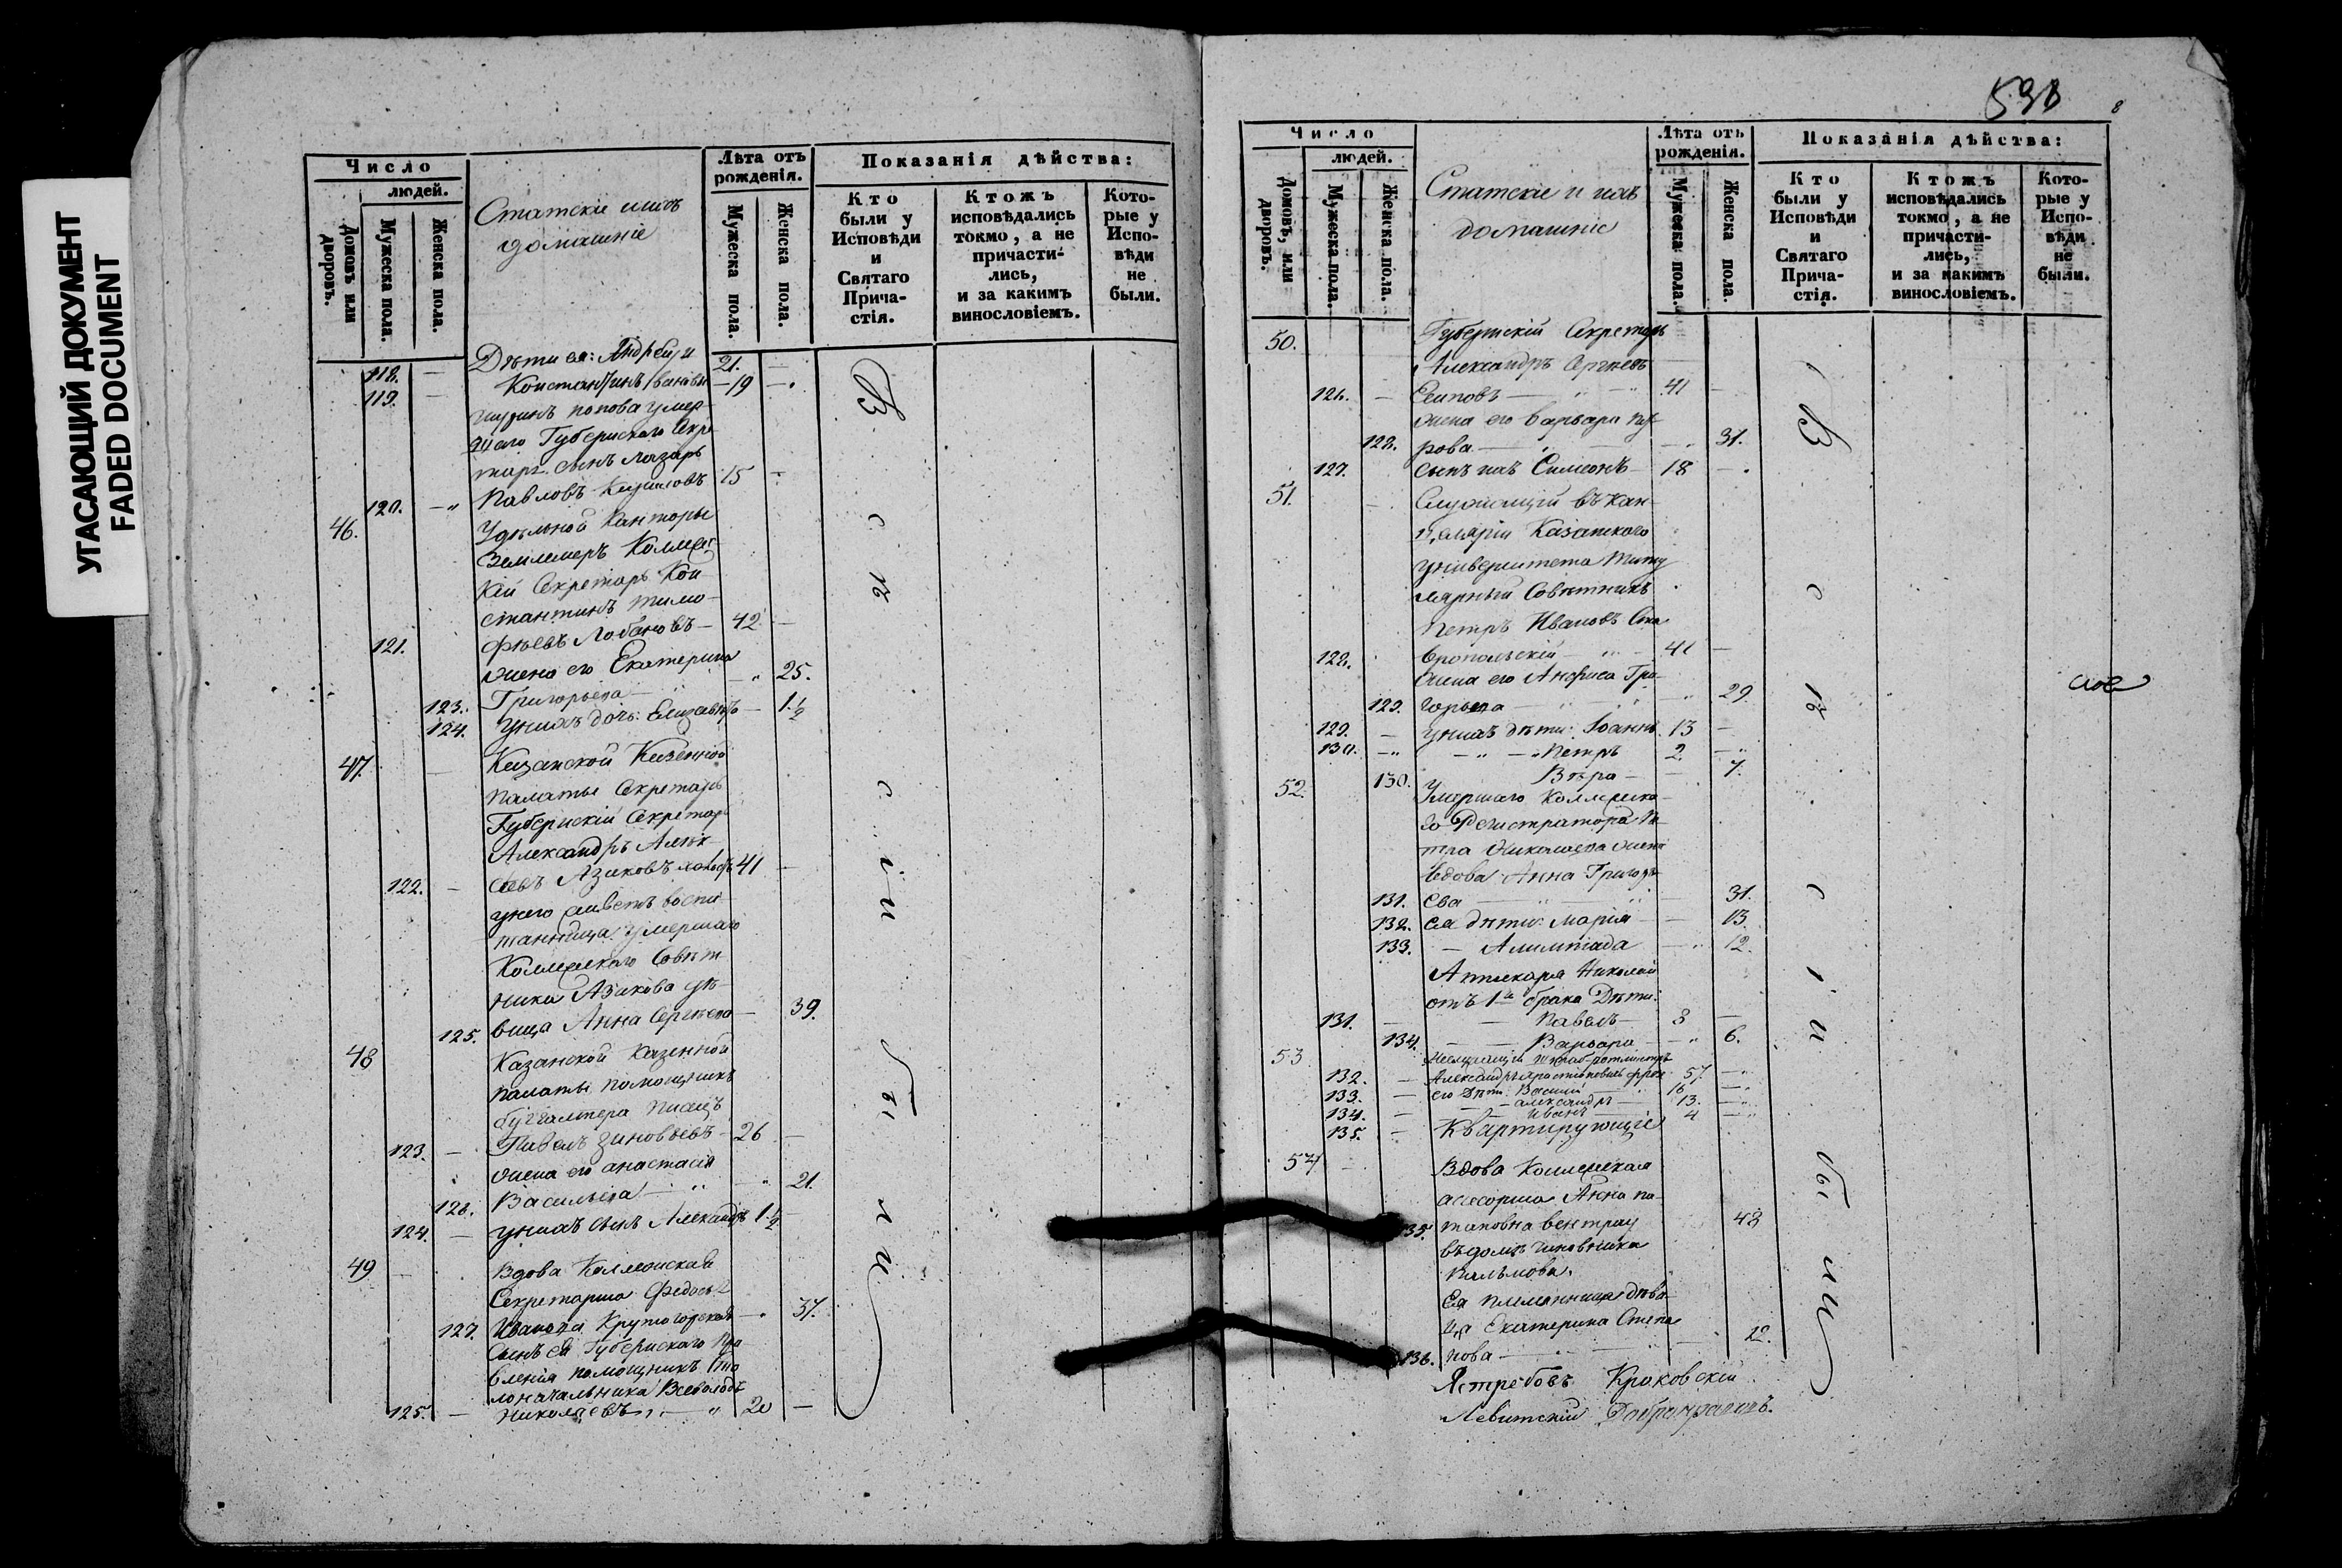 УГАСАЮЩИЙ ДОКУМЕНТ
FADED DOCUMENT
Число
людей.
Домовъ или дворовъ.
Мужеска пола.
Женска пола.
Статскіе и ихъ
домашніе
Лѣта отъ рожденія.
Мужеска пола.
Женска пола.
Показанія дѣйства:
Кто были у Исповѣди и Святаго Прича-стія.
Ктожъ исповѣдались токмо, а не причасти-лись, и за какимъ винословіемъ.
Кото-рые у Испо-вѣди не были.
118. Дѣти ея: Андрей и 21.
119. Константинъ Ивановы 19
попова умер-
шаго Губернскаго Секре-
таря сынъ Лазарь
120. Павловъ 15
46. Удѣльной Канторы
Землемеръ Коллеж
кій Секретарь Кон-
стантинъ Тимо-
121. фѣевъ Лобановъ 42
жена его Екатерина
123. Григорьева 25.
124. У нихъ дочь: Елизавета 1 1/2
47. Казанской Казенной
Палаты Секретарь
Губернскій Секретарь
Александръ Алек-
122. Азиковъ холостъ 41
у него живетъ воспи-
танница умершаго
Коллежскаго Совѣт-
ника Азикова дѣ-
125. вица Анна Сергѣева 39.
48 Казанской Казенной
палаты помощникъ
бухгалтера Писецъ
123. Павелъ Зиновьевъ 26
жена его Анастасія
126. Васильева 21.
124. у нихъ сынъ Александръ 1 1/2
49 Вдова Коллежская
Секретарша Федосья
127. Иванова Крутогорская 37.
Сынъ ея Губернскаго Пра
вленія помощникъ Сто
лоначальника Всеволодъ
125. Николаевъ 20
Всѣ с і и б ы л и
538
8
Число
людей.
Домовъ, или дворовъ.
Мужеска пола.
Женска пола.
Статскіе и ихъ
домашніе
Лѣта отъ рожденія.
Мужеска пола.
Женска пола.
Показанія дѣйства:
Кто были у Исповѣди и Святаго Прича-стія.
Ктожъ исповѣдались токмо, а не причасти-лись, и за какимъ винословіемъ.
Кото-рые у Испо-вѣди не были.
50. Губернскій Секретарь
Александръ Сергѣевъ
126. Есиповъ 41
жена его Варвара Пет
128. рова 31.
127. сынъ ихъ Симеонъ 18
51. Служащій въ Кан-
целяріи Казанскаго
университета Титу
лярный Совѣтникъ
Петръ Ивановъ Ста
128. вропольскій 41
жена его Анфиса Гри-
129. горьева 29.
129. у нихъ дѣти: Іоаннъ 13
130. Петръ 2.
130. Вѣра 7.
52. Умершаго Коллежска-
го Регистратора Пе
тра жена
вдова Анна Григорь
131. ева 31.
132. ея дѣти: Марія 13.
133. Алимпіада 12.
Аптекаря Николая
отъ 1го брака Дѣти:
131. Павелъ 8
134. Варвара 6.
53 штаб-ротмистръ
132. Александръ 57
133. его Дѣти: Василій 16
134. Александръ 13.
135. Иванъ 4
Квартирующіе
54 Вдова Коллежская
асессорша Анна По-
135. таповна 48
въ домѣ чиновника
Ея племянница дѣви
ца Екатерина Степа
136. нова 22.
Всѣ с і и б ы л и
Ястребовъ Краковскій
Левитскій